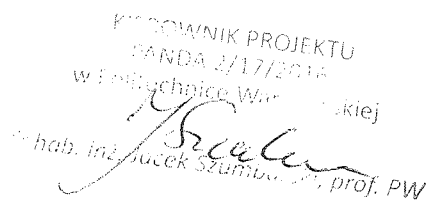 KIEROWNIK PROJEKTU
PANDA 2/17/2016
w Politechnice Warszawskiej
hab. inż. Jacek prof. PW